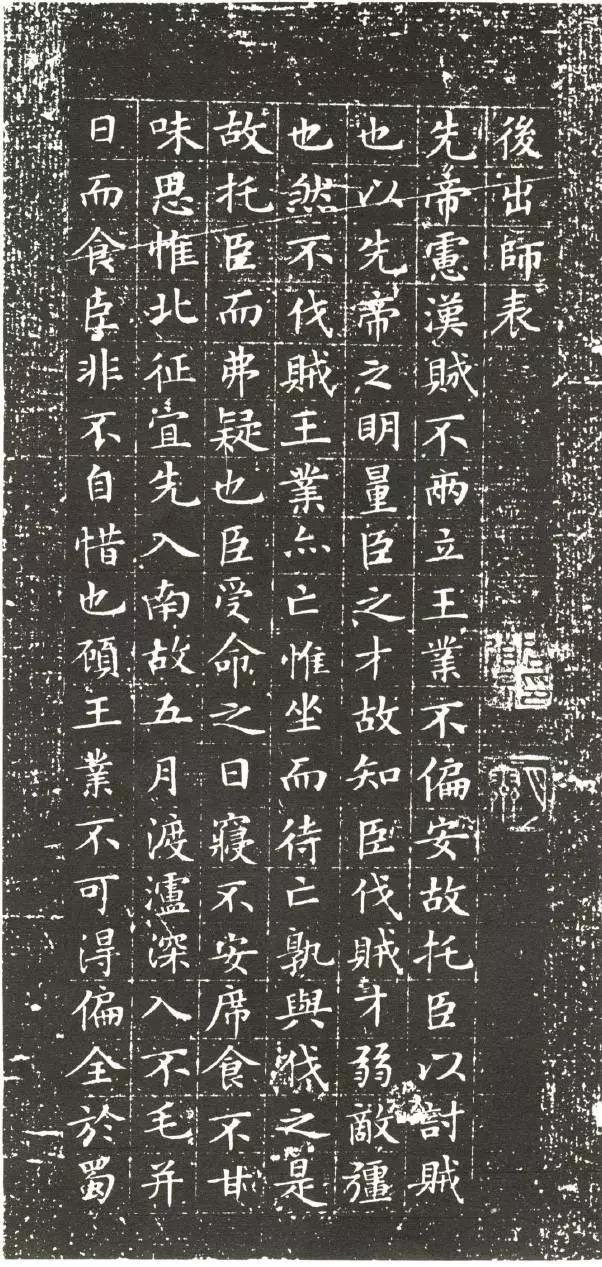 後出師表
先帝慮漢賊不兩立王業不偏安故托臣以討賊
也以先帝之明量臣之才故知臣伐賊才弱敵彊
也然不伐賊王業亦亡惟坐而待亡孰與伐之是
故托臣而弗疑也臣受命之日寢不安席食不甘
味思惟北征宜先入南故五月渡瀘深入不毛并
日而食臣非不自惜也顧王業不可得偏全於蜀